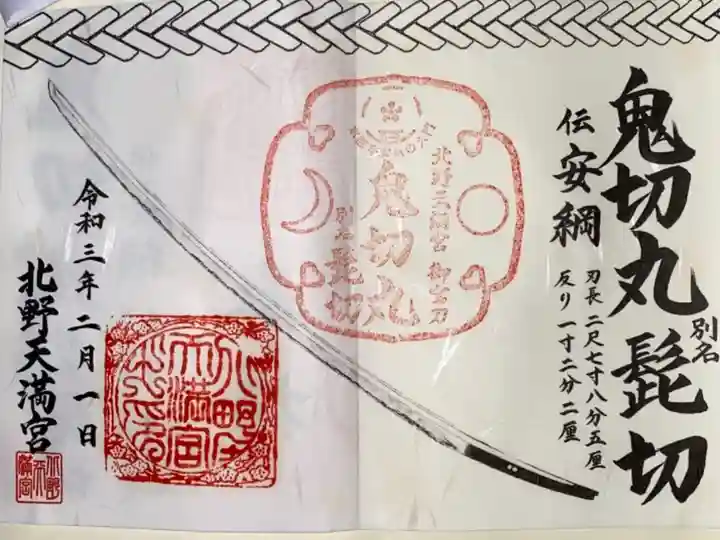 鬼切丸
別名
髭切
伝 安綱
刃長 二尺七寸八分五厘
反り 一寸二分二厘
北野天満宮 御太刀
鬼切丸
別名 髭切
令和三年二月一日
北野天満宮
北野天満宮